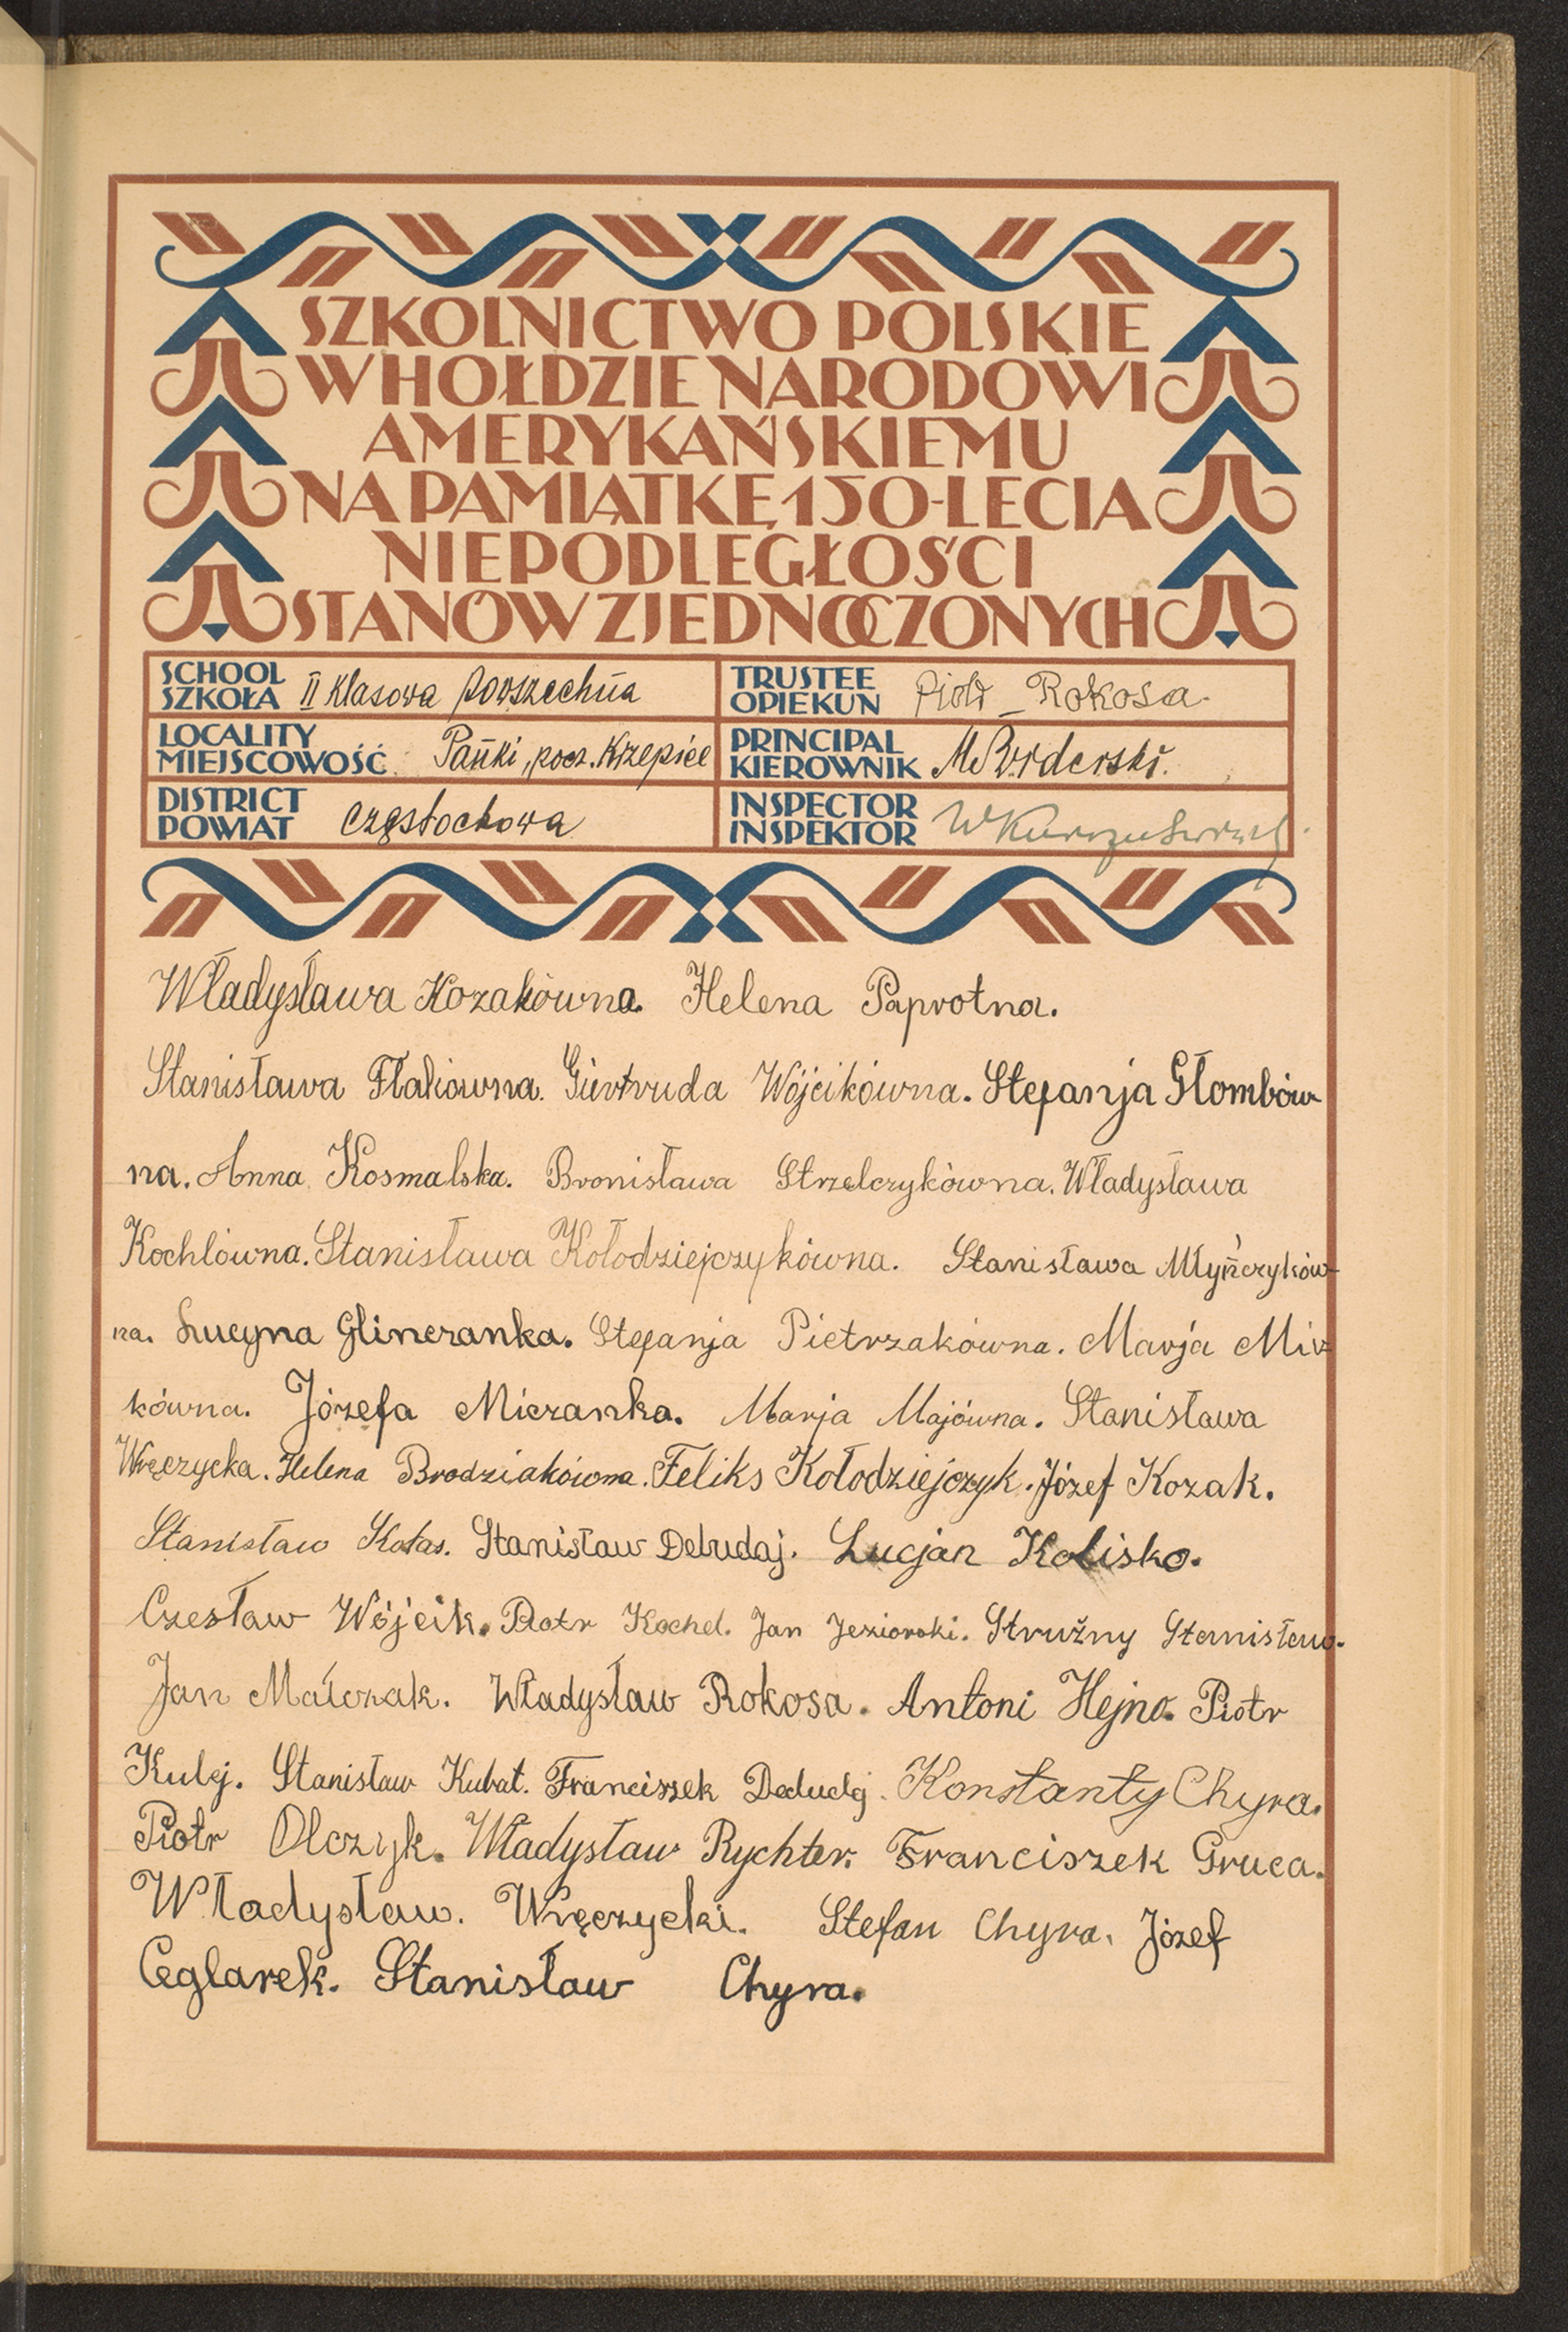 SZKOLNICTWO POLSKIE
W HOŁDZIE NARODOWI
AMERYKAŃSKIEMU
NA PAMIĄTKĘ 150-LECIA
NIEPODLEGŁOŚCI
STANÓW ZJEDNOCZONYCH
SCHOOL
SZKOŁA II klasowa powszechna
TRUSTEE
OPIEKUN Piotr Rokosa
LOCALITY
MIEJSCOWOŚĆ Pańki, pocz. Krzepice
PRINCIPAL
KIEROWNIK
DISTRICT
POWIAT Częstochowa
INSPECTOR
INSPEKTOR
Władysława Kozakówna. Helena Paprotna.
Stanisława Flakówna. Giertruda Wójcikówna. Stefanja Głombów
na. Anna Kosmalska. Bronisława Strzelczykówna. Władysława
Kochlówna. Stanisława Kołodziejczykówna. Stanisława Młyńczyków-
na. Lucyna Glineranka. Stefanja Pietrzakówna. Marja Mir
kówna. Józefa Miczanka. Marja Majówna. Stanisława
Wręczycka. Helena Brodziakówna. Feliks Kołodziejczyk. Józef Kozak.
Stanisław Kotas. Stanisław Debudaj. Lucjan Kolisko.
Czesław Wójcik. Piotr Kochel. Jan Jeziorski. Strużny Stanisław.
Jan Małczak. Władysław Rokosa. Antoni Hejno. Piotr
Kulej. Stanisław Kubat. Franciszek Konstanty Chyra.
Piotr Olczyk. Władysław Rychter. Franciszek Gruca.
Władysław. Wręczycki. Stefan Chyra. Józef
Ceglarek. Stanisław Chyra.